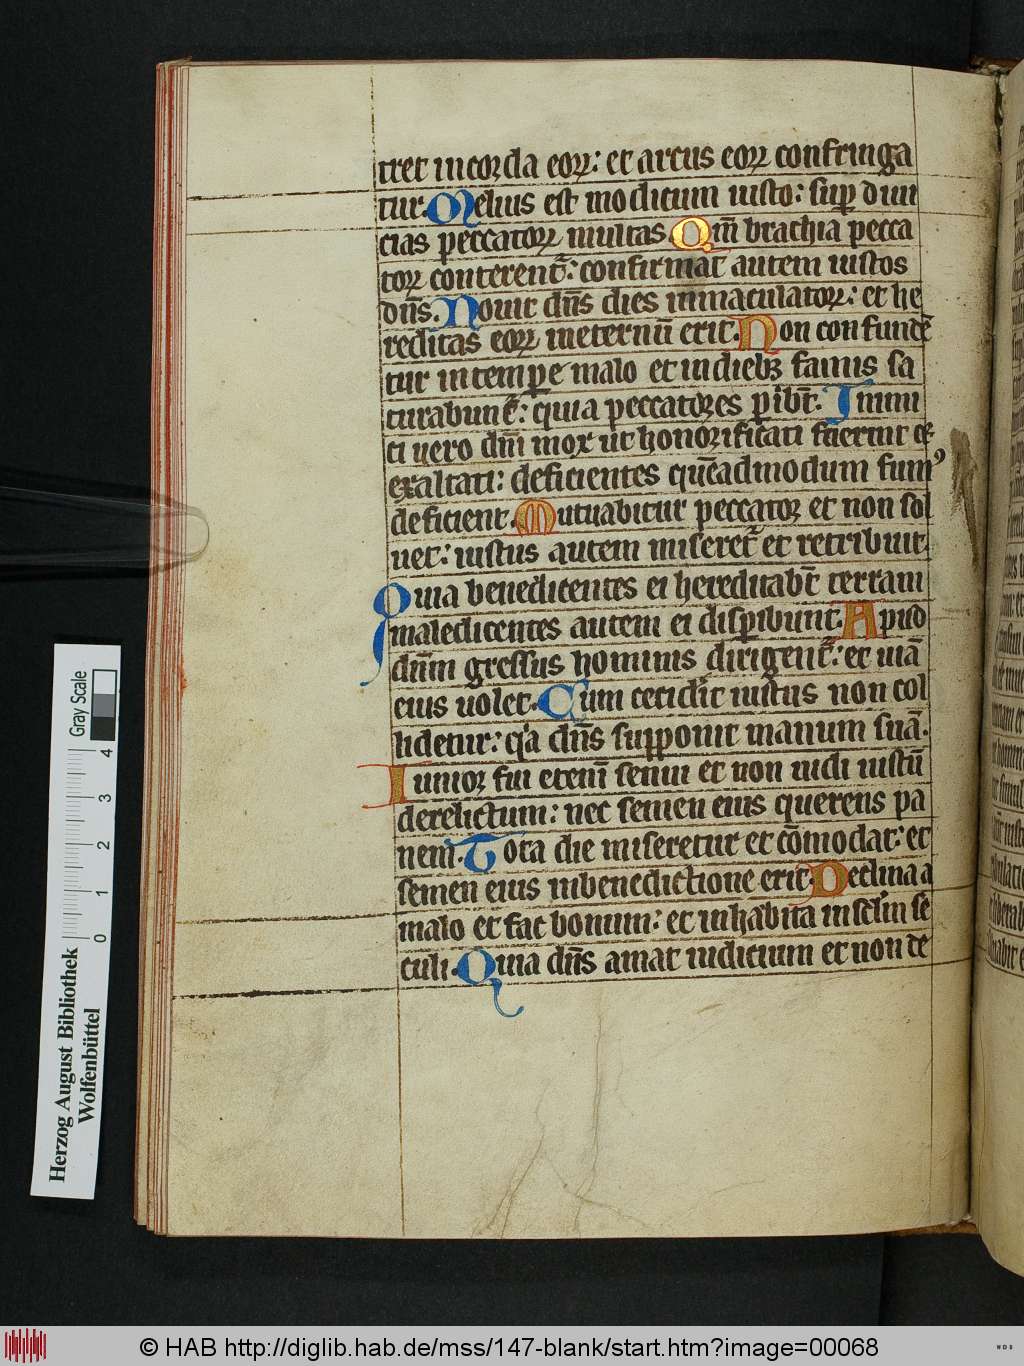 tret in corda eoꝝ: et arcus eoꝝ confringa
tur. Melius est modicum iusto: suꝑ diui
cias peccatoꝝ multas. Qm̄ brachia pecca
toꝝ conterent᷑: confirmat autem iustos
dn̄s. Nouit dn̄s dies inmaculatoꝝ: et he
reditas eoꝝ ineternū erit. Non confundē
tur in tempe malo et in diebꝫ famis sa
turabunt᷑: quia peccatores ꝑibt̄. Inimi
ci uero dn̄i mox ut honorificati fuerint et
exaltati: deficientes quēadmodum fumꝰ
deficient. Mutuabitur peccator et non sol
uet: iustus autem miseret᷑ et retribuit.
Quia benedicentes ei hereditabt̄ terram
maledicentes autem ei disꝑibunt. Apud
dn̄m gressus hominis dirigent᷑: et uiā
eius uolet. Cum ceciderit iustus non col
lidetur: qͥa dn̄s supponit manum suā.
Iunior fui etenī senui et non uidi iustū
derelictum: nec semen eius querens pa
nem. Tota die miseretur et cōmodat: et
semen eius in benedictione erit. Declina a
malo et fac bonum: et inhabita in sclm̄ se
culi. Quia dn̄s amat iudicium et non de
Herzog August Bibliothek
Wolfenbüttel
0 1 2 3 4
Gray Scale
© HAB http://diglib.hab.de/mss/147-blank/start.htm?image=00068
HAB